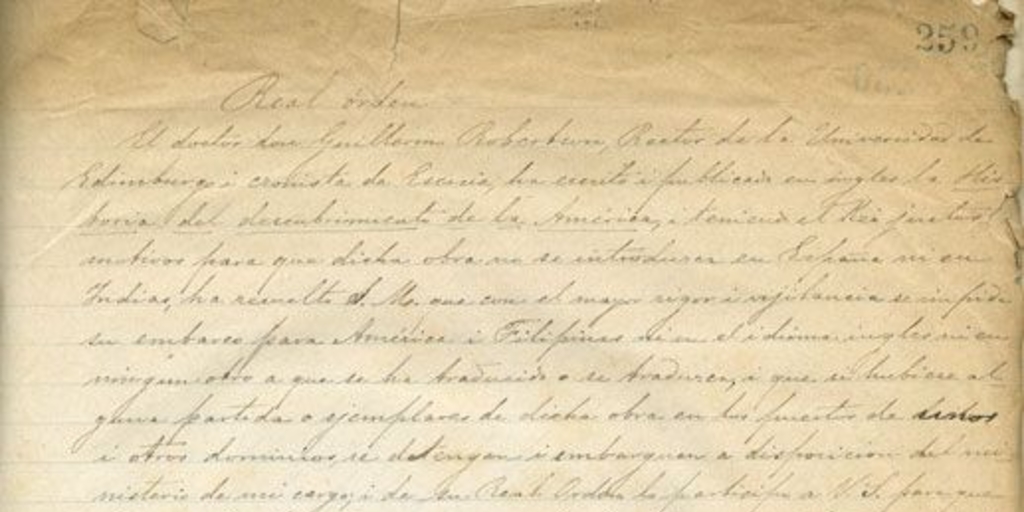 259
Real órden
El doctor don Guillermo Robertson, Rector de la Universidad de
Edimburgo i cronista de Escocia, ha escrito i publicado en ingles la His
toria del descubrimiento de la América, i teniendo el Rei justos
motivos para que dicha obra no se introduzca en España ni en
Indias, ha resuelto S. M. que con el mayor rigor i vijilancia se impida
su embarco para América i Filipinas ni en el idioma ingles ni en
ningun otro a que se ha traducido o se traduzca, i que si hubiese al
guna partida o ejemplares de dicha obra en los puertos de
i otros dominios, se detengan i embarguen a disposicion del mi
nisterio de mi cargo; i de su Real Orden lo participo a V. S. para que